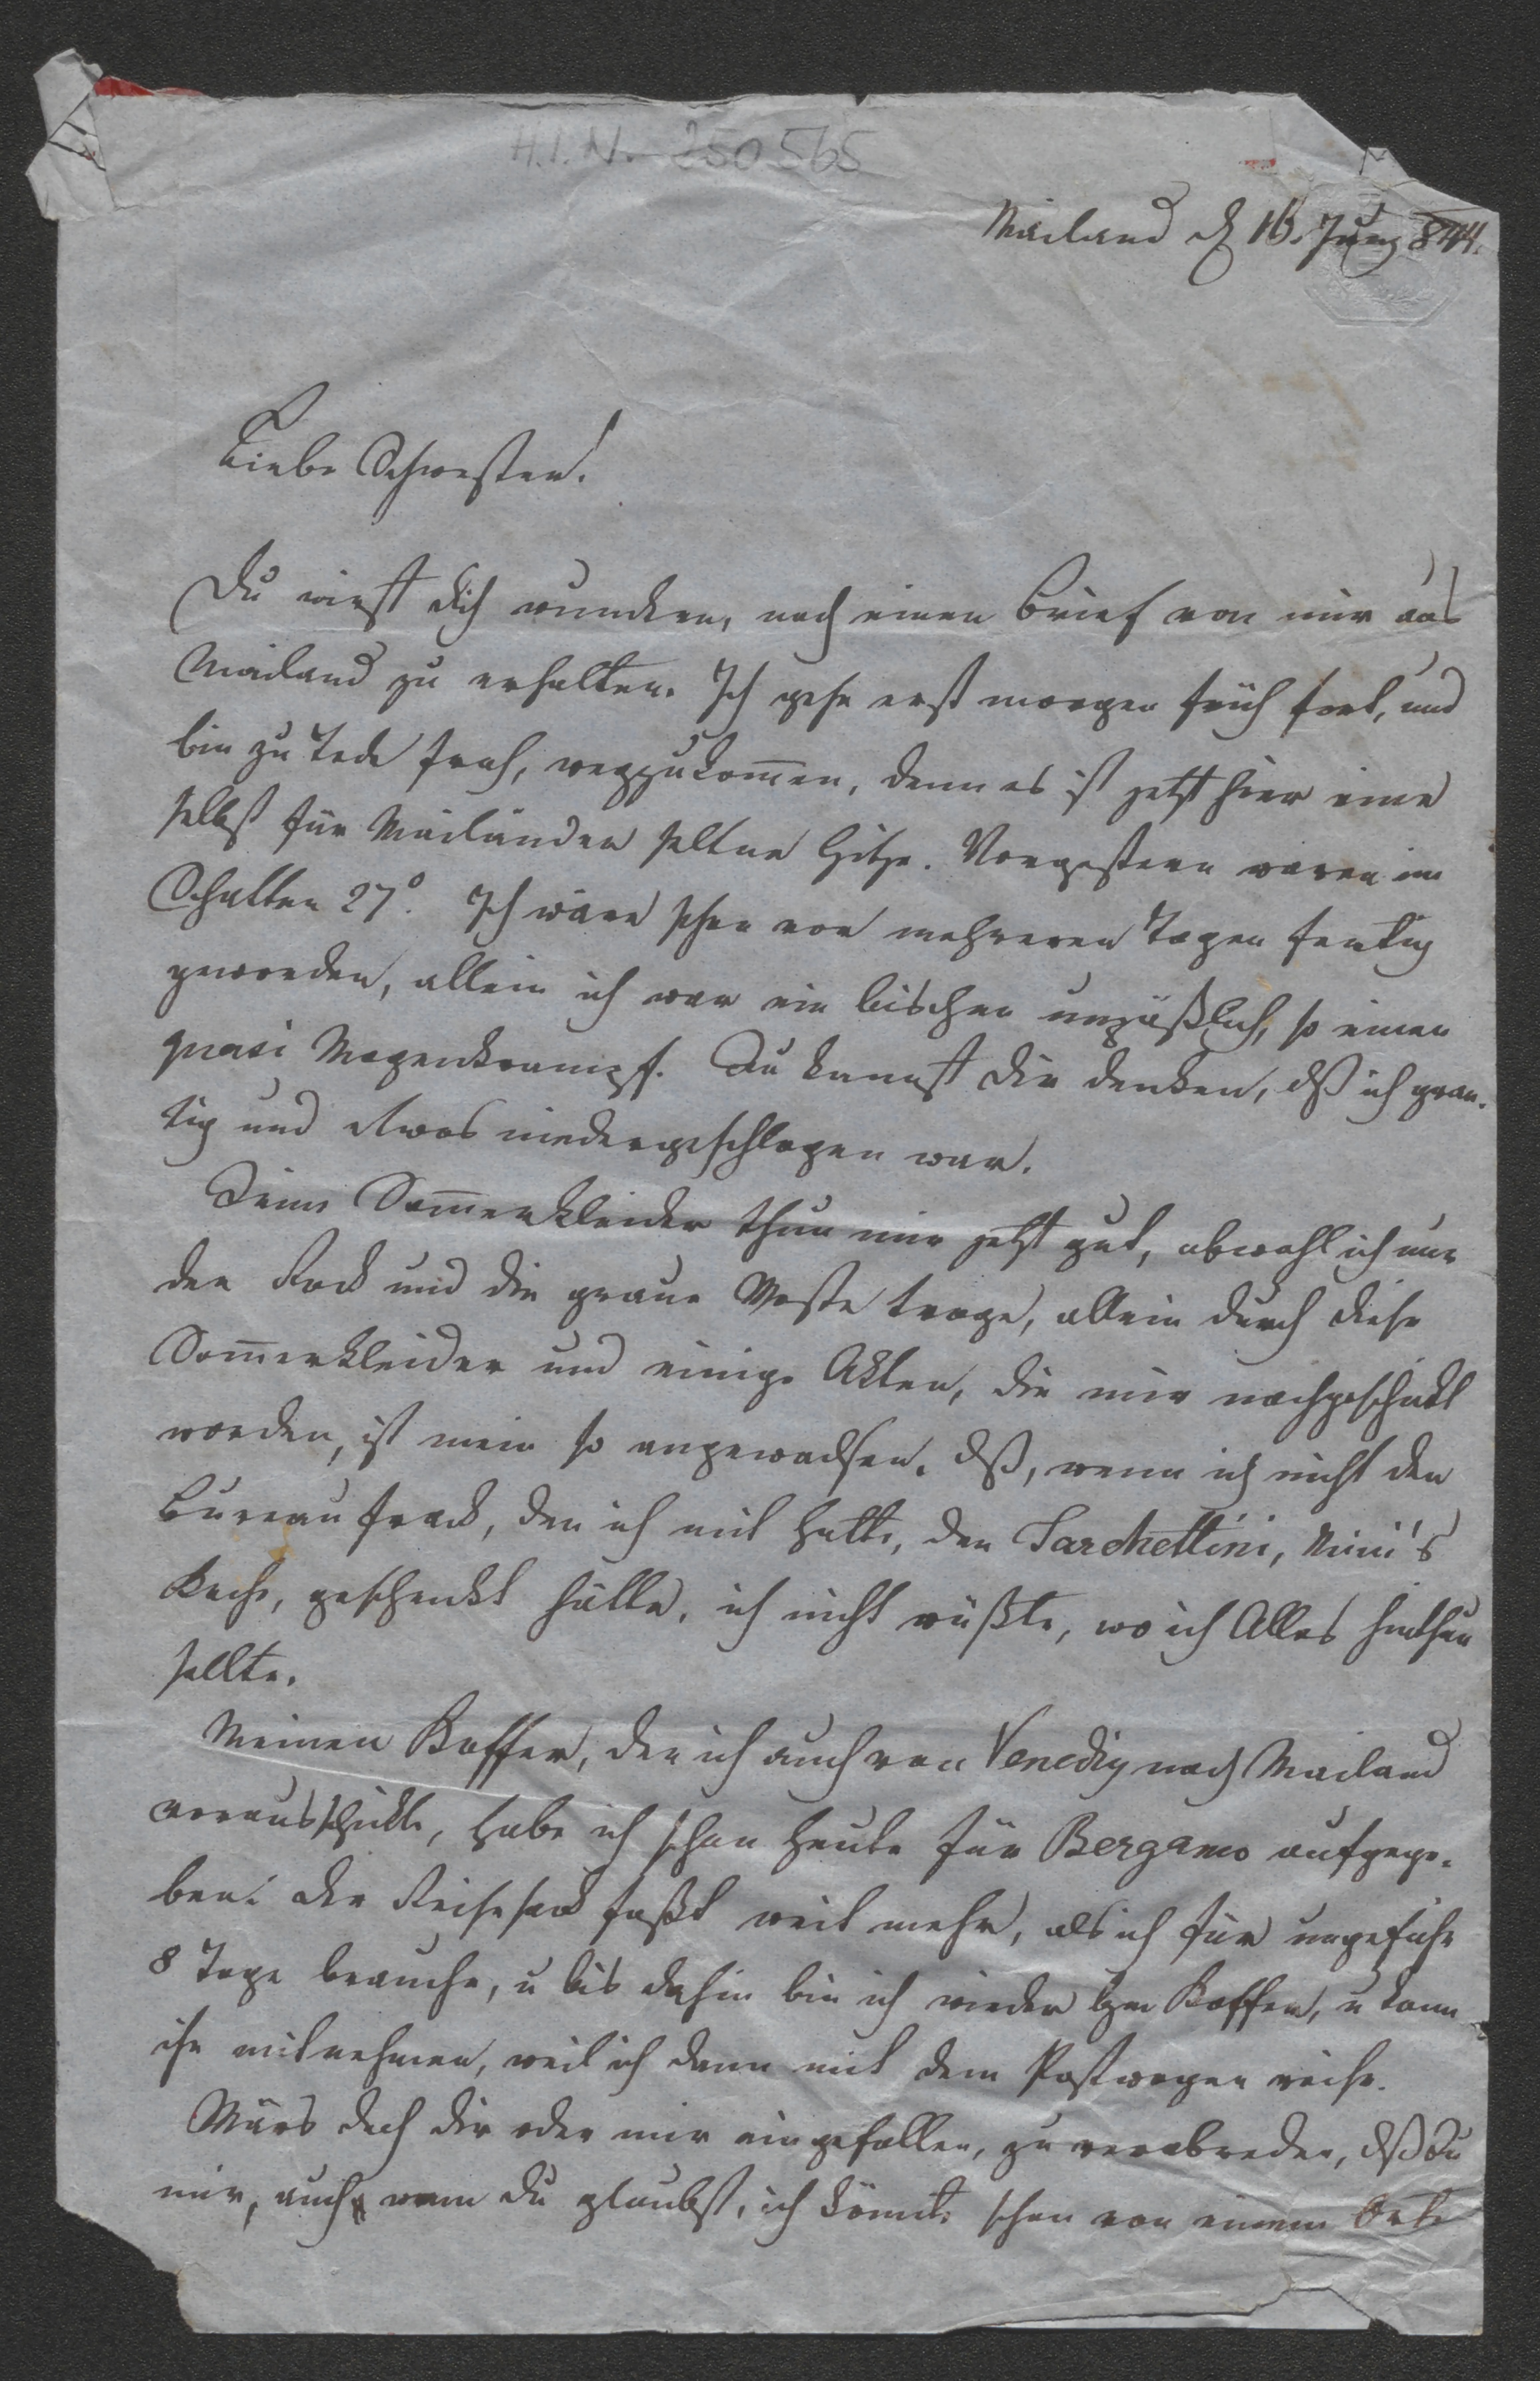 H.I.N.-250565
Mailand d 16. Juny 844.
Liebe Schwester!
Du wirst dich wundern, noch einen Brief von mir aus
Mailand zu erhalten. Ich gehe erst morgen früh fort, und
bin zu Tode froh, wegzukom̄en, denn es ist jetzt hier eine
selbst für Mailänder seltne Hitze. Vorgestern waren im
Schatten 27°. Ich wäre schon vor mehreren Tagen fertig
geworden, allein ich war ein bischen unpäßlich, so einen
quasi Magenkrampf. Du kannst dir denken, dß ich gran-
tig und etwas niedergeschlagen war.
Deine Som̄erkleider thun mir jetzt gut, obwohl ich nur
den Rock und die graue Weste trage, allein durch diese
Som̄erkleider und einige Akten, die mir nachgeschickt
worden, ist mein so angewachsen, dß, wenn ich nicht den
Bureaufrack, den ich mit hatte, den Tarchettini, Mini's
Koch, geschenkt hätte, ich nicht wüßte, wo ich Alles hinthun
sollte.
Meinen Koffer, den ich auch von Venedig nach Mailand
vorausschickte, habe ich schon heute für Bergamo aufgege-
ben. Der Reisesack faßt weit mehr, als ich für ungefähr
8 Tage brauche, u bis dahin bin ich wieder bym Koffer, u kann
ihn mitnehmen, weil ich dann mit dem Postwagen reise.
Wärs doch dir oder mir eingefallen, zu verabreden, dß du
mir, auch wenn du glaubst, ich könnte schon von einem Orte